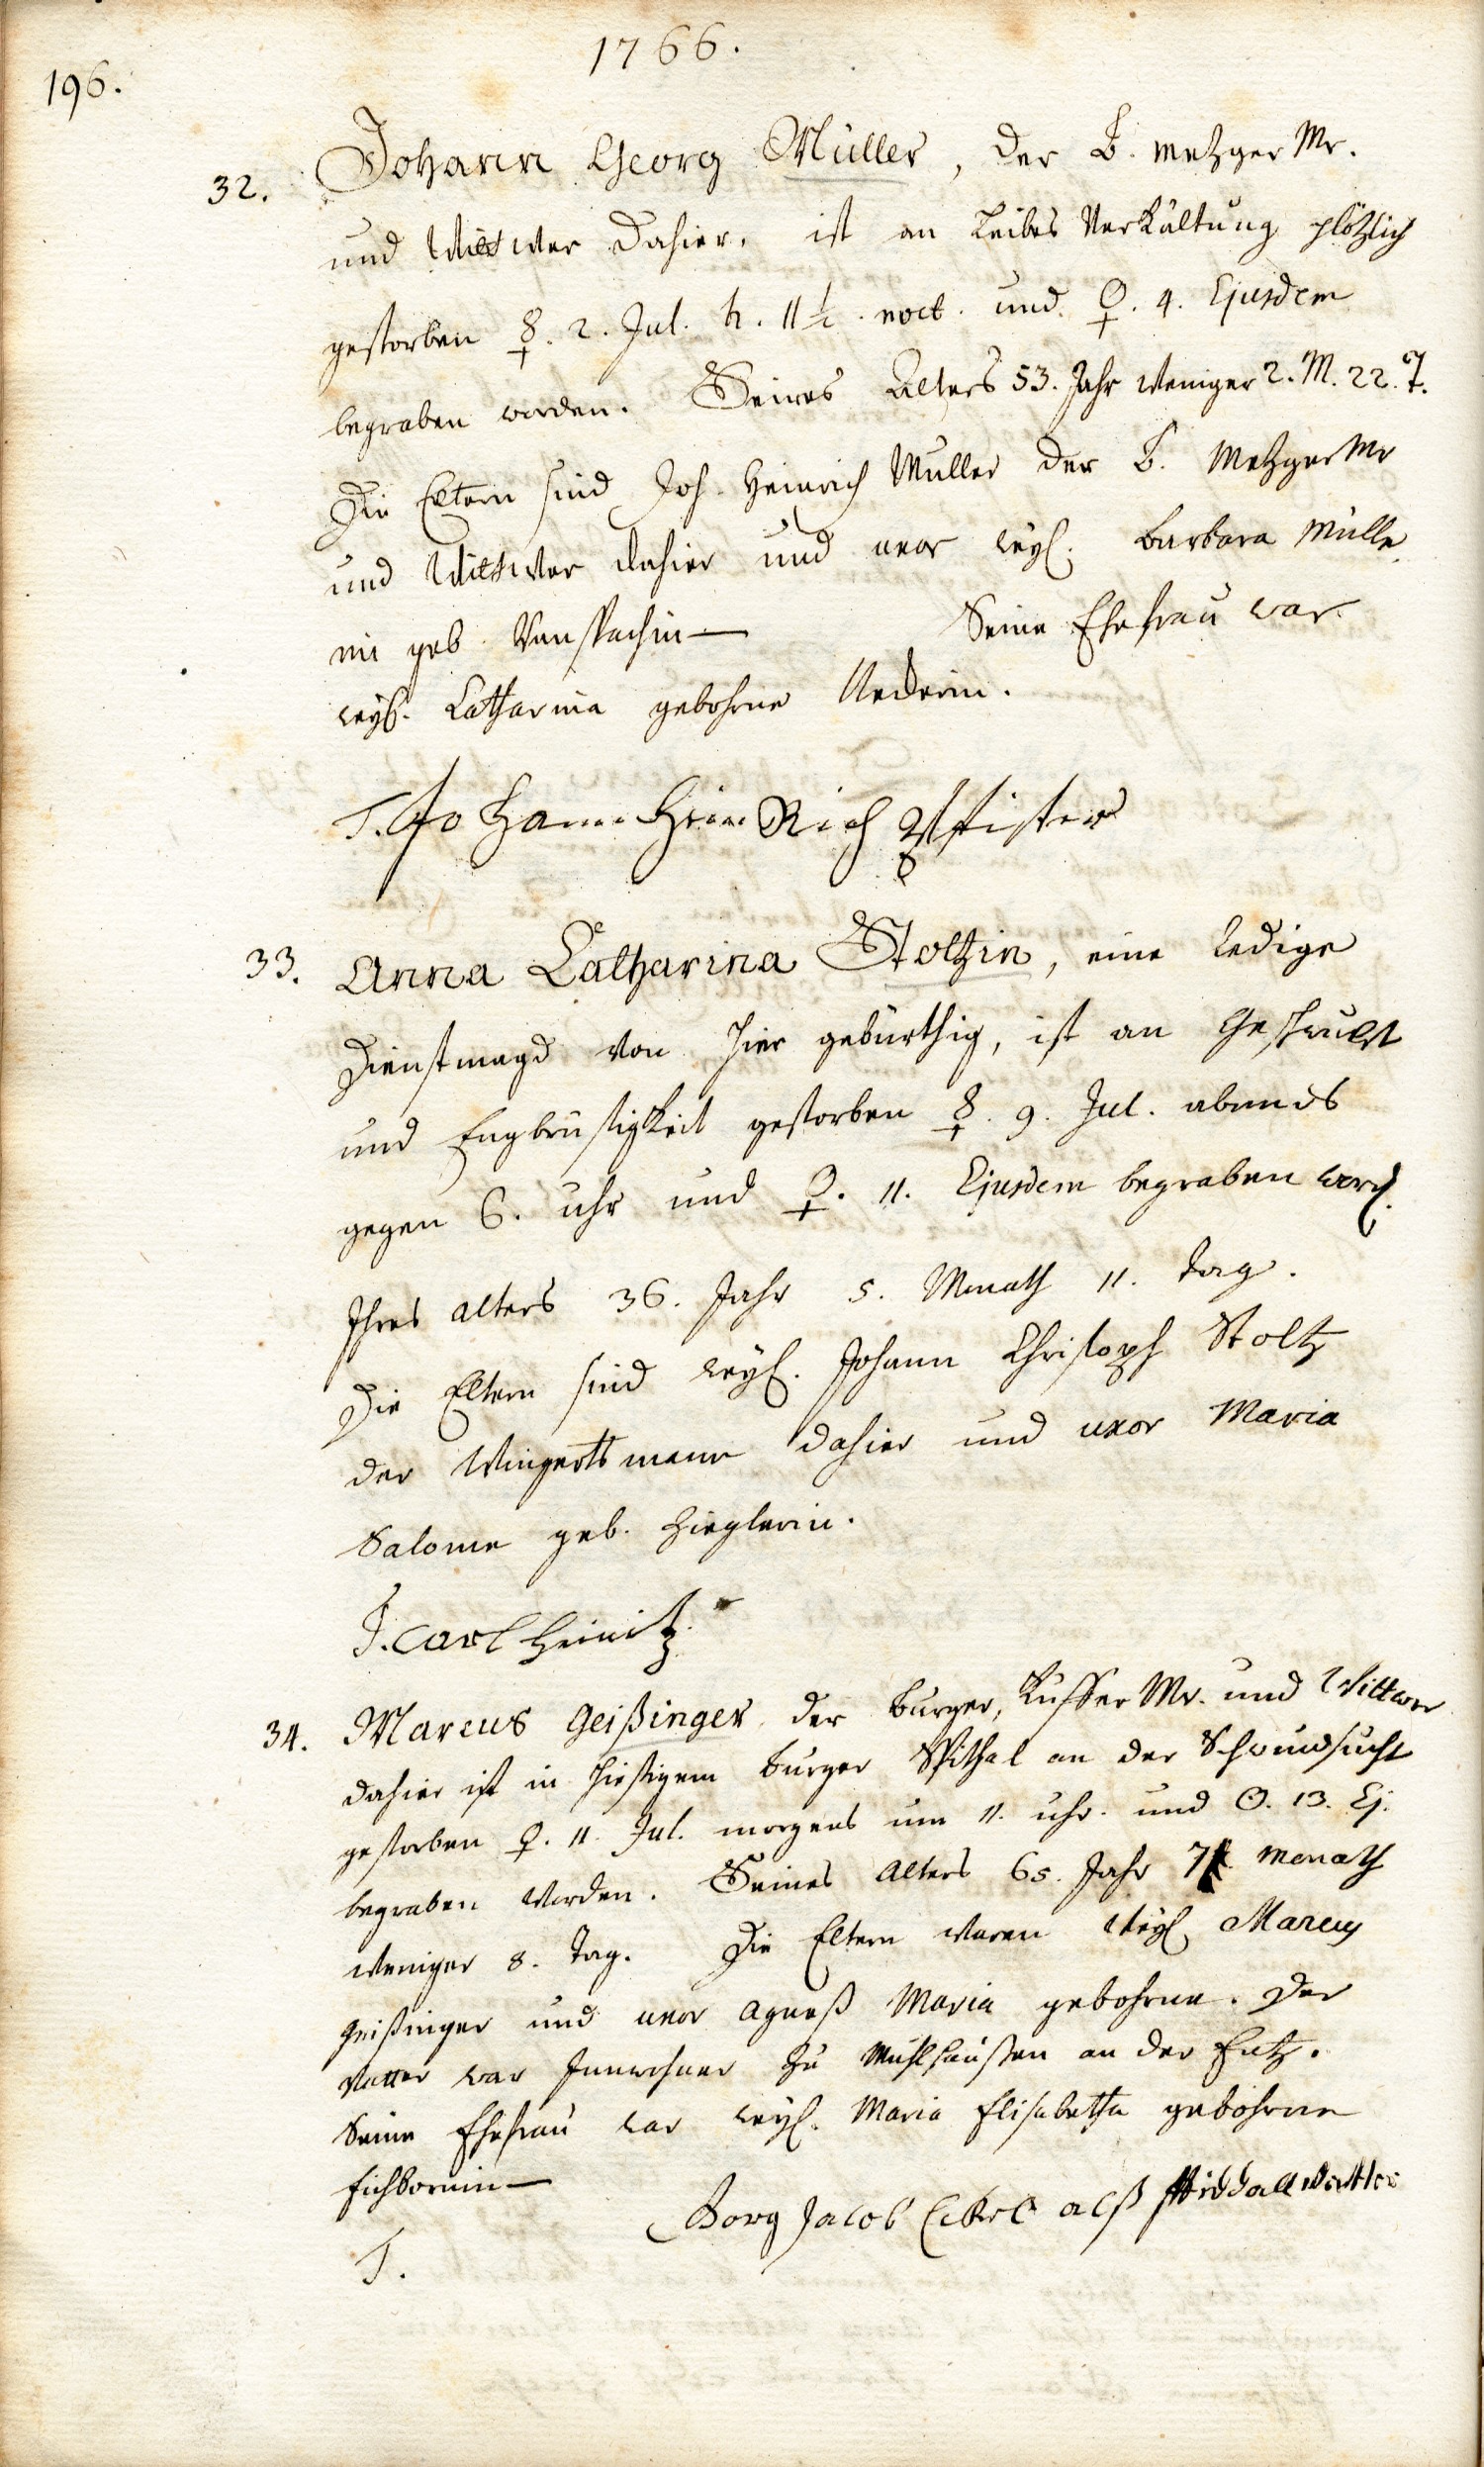 1766.
196.
32. Johann Georg Müller, der B. Metzger Mr.
und Wittwer dahier, ist an Leibes Verkältung plötzlich
gestorben ☿. 2. Jul. h. 11½. noct. und ♀. 4. Ejusdem
begraben worden. Seines Alters 53. Jahr weniger 2. M. 22. T.
Die Eltern sind Joh. Heinrich Müller der B. Metzger Mr
und Wittwer dahier und uxor weyl. Barbara Mülle
rin geb. Seine Ehefrau war
weyl. Catharina gebohrne
T. Johann HeinRich Pfister
33. Anna Catharina Stoltzin, eine ledige
Dienstmagd von hier gebürthig, ist an Geschwulst
und Engbrüstigkeit gestorben ☿. 9. Jul. abends
gegen 6. uhr und ♀. 11. Ejusdem begraben word.
Ihres alters 36. Jahr 5. Monath 11. Tag.
Die Eltern sind weyl. Johann Christoph Stoltz
der Wingertsmann dahier und uxor Maria
Salome geb. Zieglerin.
T. Carl Heinitz
34. Marcus Geißinger, der Burger, Kuffer Mr. und Wittwer
dahier ist in hiesigem Burger Spithal an der Schwindsucht
gestorben ♀. 11. Jul. morgens um 11. uhr. und ☉. 13. Ej.
begraben worden. Seines Alters 65. Jahr 7 Monath
weniger 8. Tag. Die Eltern waren weyl Marcus
Geißinger und uxor Agnes Maria gebohrne. Der
Vatter war Innwohner zu Mühlhaußen an der Entz.
Seine Ehefrau war weyl. Maria Elisabetha gebohrne
Eichbornin
Gorg Jacob Eckel alß
T.